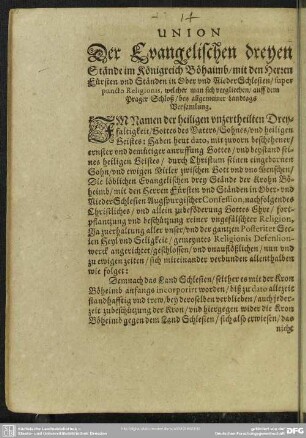 UNION
Der Evangelischen dreyen
Stände im Königreich Böhaimb/ mit den Herren
Fürsten vnd Ständen in Ober vnd Nieder Schlesien/ super
puncto Religionis, welcher man sich verglichen/ auff dem
Prager Schloß/ bey allgemeiner Landtags
Versamlung.
IM Namen der heiligen vnzertheilten Drey-
faltigkeit/ Gottes des Vaters/ Sohnes/ vnd heiligen
Geistes: Haben heut dato/ mit zuvorn beschehener/
ernster vnd demütiger anruffung Gottes/ vnd beystand sei-
nes heiligen Geistes/ durch Christum seinen eingebornen
Sohn/ vnd ewigen Mitler zwischen Gott vnd vns Menschen/
Die löblichen Evangelischen drey Stände der Krohn Bö-
heimb/ mit den Herren Fürsten vnd Ständen in Ober- vnd
Nieder Schlesien Augspurgischer Confession, nachfolgendes
Christliches/ vnd allein zu beförderung Gottes Ehre/ fort-
pflantzung vnd beschützung reiner vngefälschter Religion,
Zu erhaltung aller vnser/ vnd der gantzen Posteritet See-
len Heyl vnd Seligkeit/ gemeyntes Religionis Defension-
werck angerichtet/ geschlossen/ vnd vnaufflößlichen/ nun vnd
zu ewigen zeiten/ sich miteinander verbunden allenthalben
wie folget:
Demnach das Land Schlesien/ seither es mit der Kron
Böheimb anfangs incorporirt worden/ biß zu dato allezeit
standhafftig vnd trew/ bey derselben verblieben/ auch jeder-
zeit zubeschützung der Kron/ vnd hiergegen wider die Kron
Böheimb gegen dem Land Schlesien/ sich also erwiesen/ das
nicht